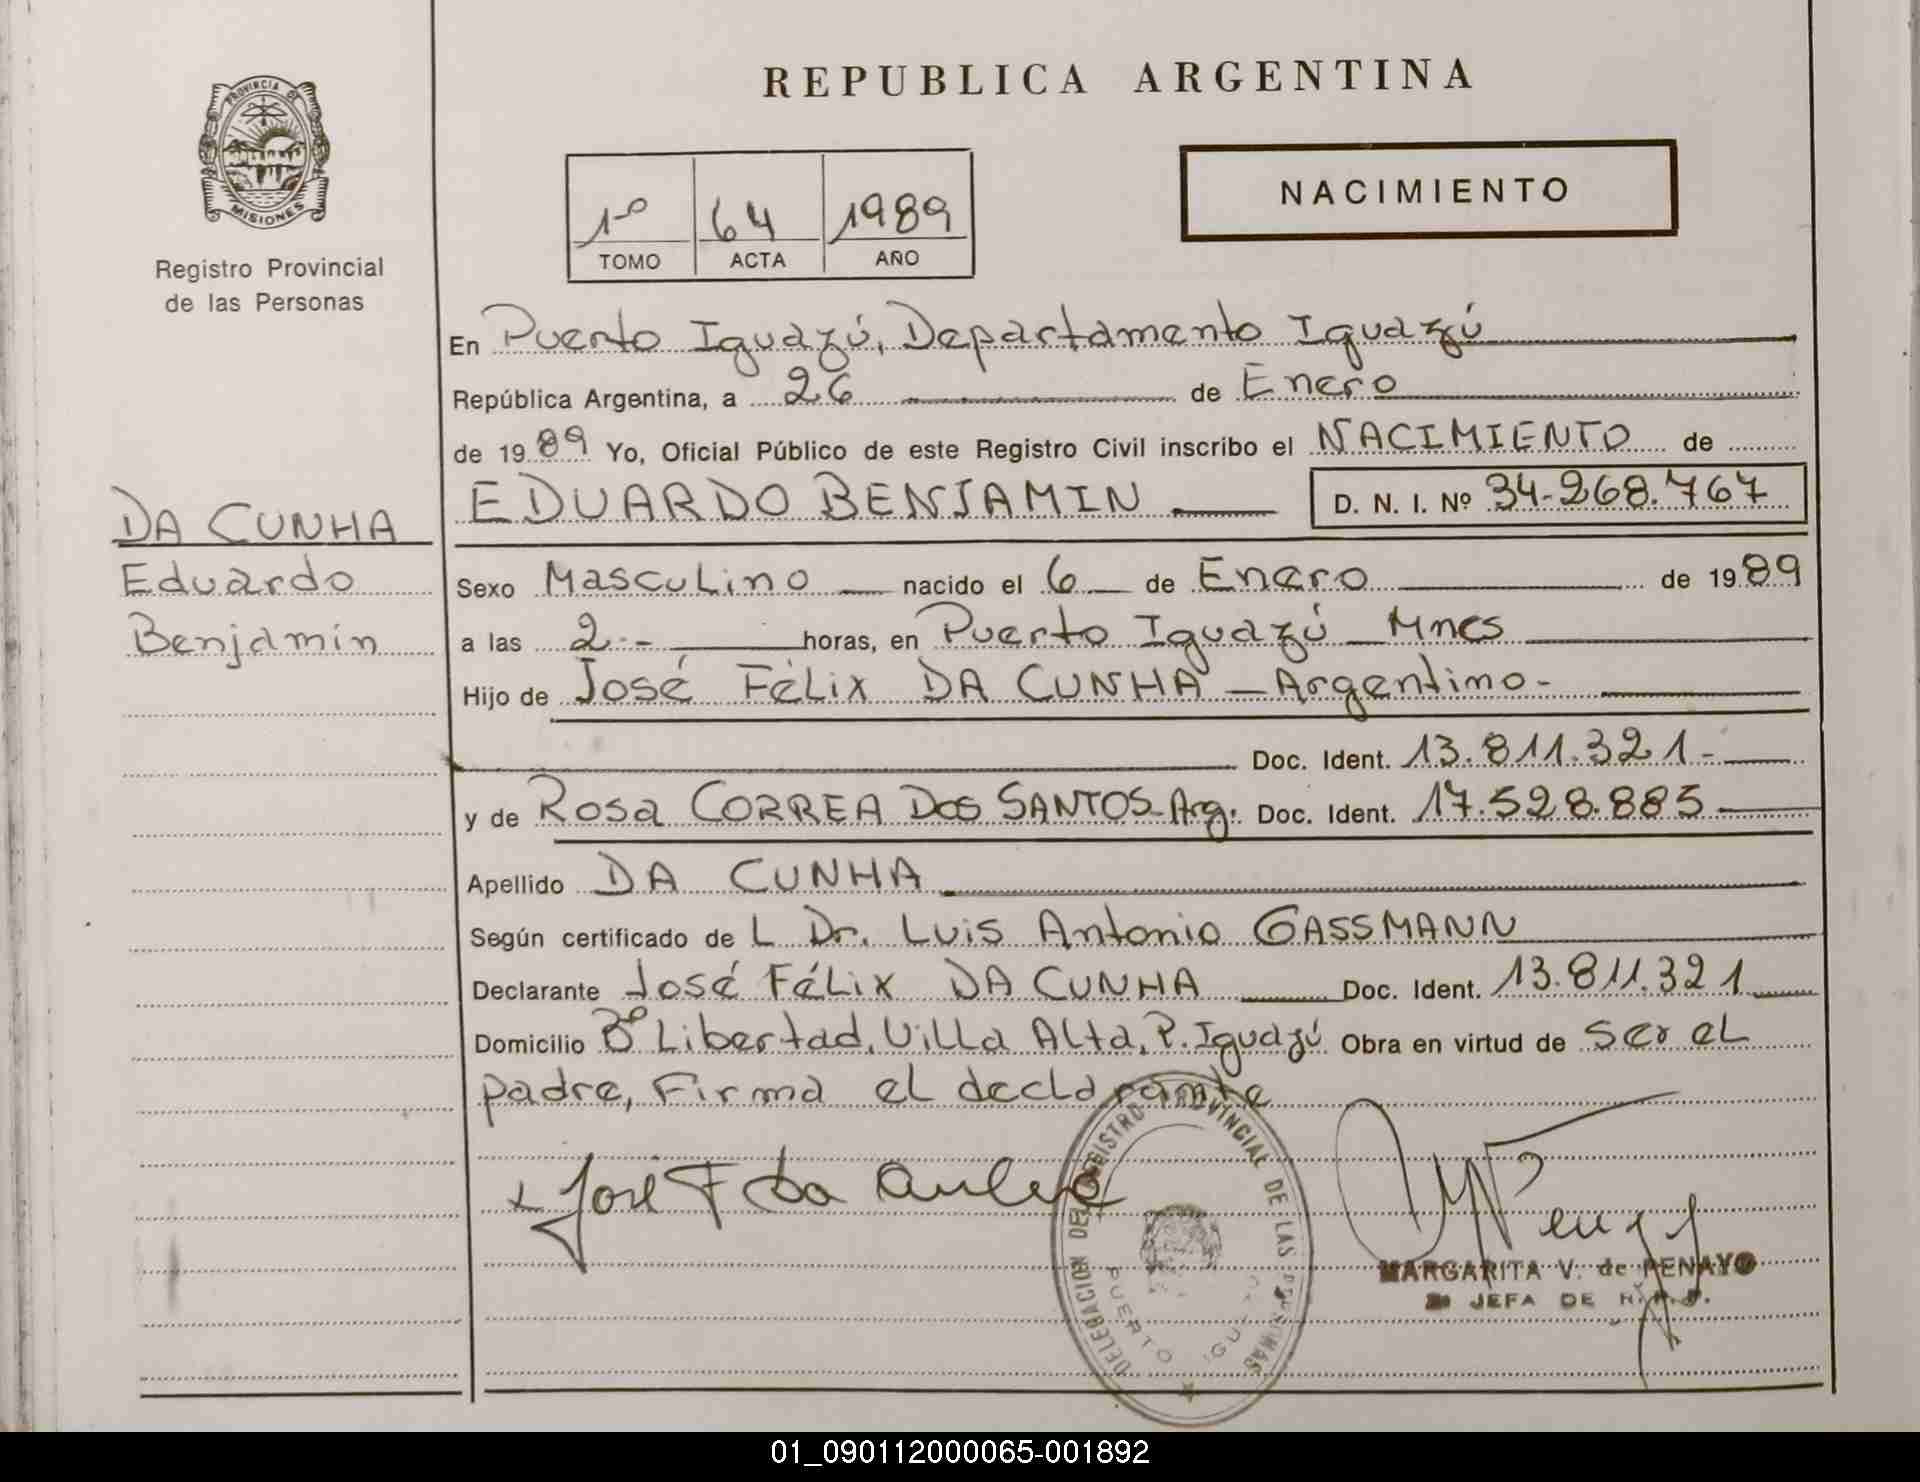 REPUBLICA ARGENTINA
PROVINCIA DE
MISIONES
Registro Provincial
de las Personas
1º 64 1989
TOMO ACTA AÑO
NACIMIENTO
En Puerto Iguazú, Departamento Iguazú
República Argentina, a 26 de Enero
de 1989 Yo, Oficial Público de este Registro Civil inscribo el NACIMIENTO de
EDUARDO BENJAMIN D. N. I. Nº 34-268.767
DA CUNHA
Eduardo
Benjamín
Sexo Masculino nacido el 6 de Enero de 1989
a las 2.- horas, en Puerto Iguazú Mnes
Hijo de José Félix DA CUNHA - Argentino -
Doc. Ident. 13.811.321-
y de Rosa CORREA Dos SANTOS-Arg. Doc. Ident. 17.528.885
Apellido DA CUNHA
Según certificado de L Dr. Luis Antonio GASSMANN
Declarante José Félix DA CUNHA Doc. Ident. 13.811.321
Domicilio Bº Libertad, Villa Alta, P. Iguazú Obra en virtud de ser el
padre, Firma el declarante
José F da Cunha
DELEGACION DEL REGISTRO PROVINCIAL DE LAS PERSONAS
PUERTO IGUAZU
MARGARITA V. de PENAYO
JEFA DE
01_090112000065-001892